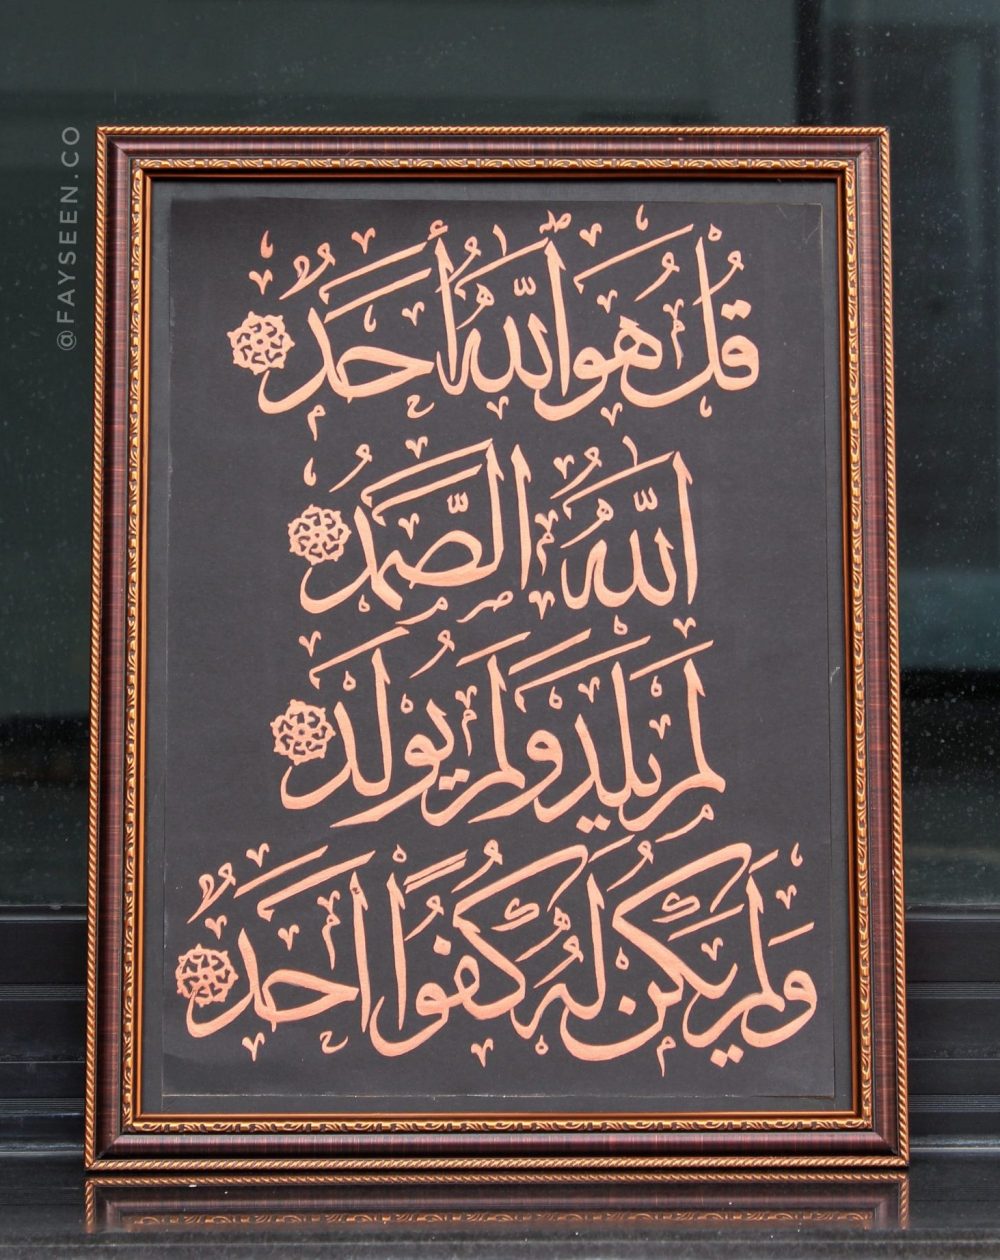 قُلْ هُوَ اللَّهُ أَحَدٌ
اللَّهُ الصَّمَدُ
لَمْ يَلِدْ وَلَمْ يُولَدْ
وَلَمْ يَكُنْ لَهُ كُفُوًا أَحَدٌ
@FAYSEEN.CO